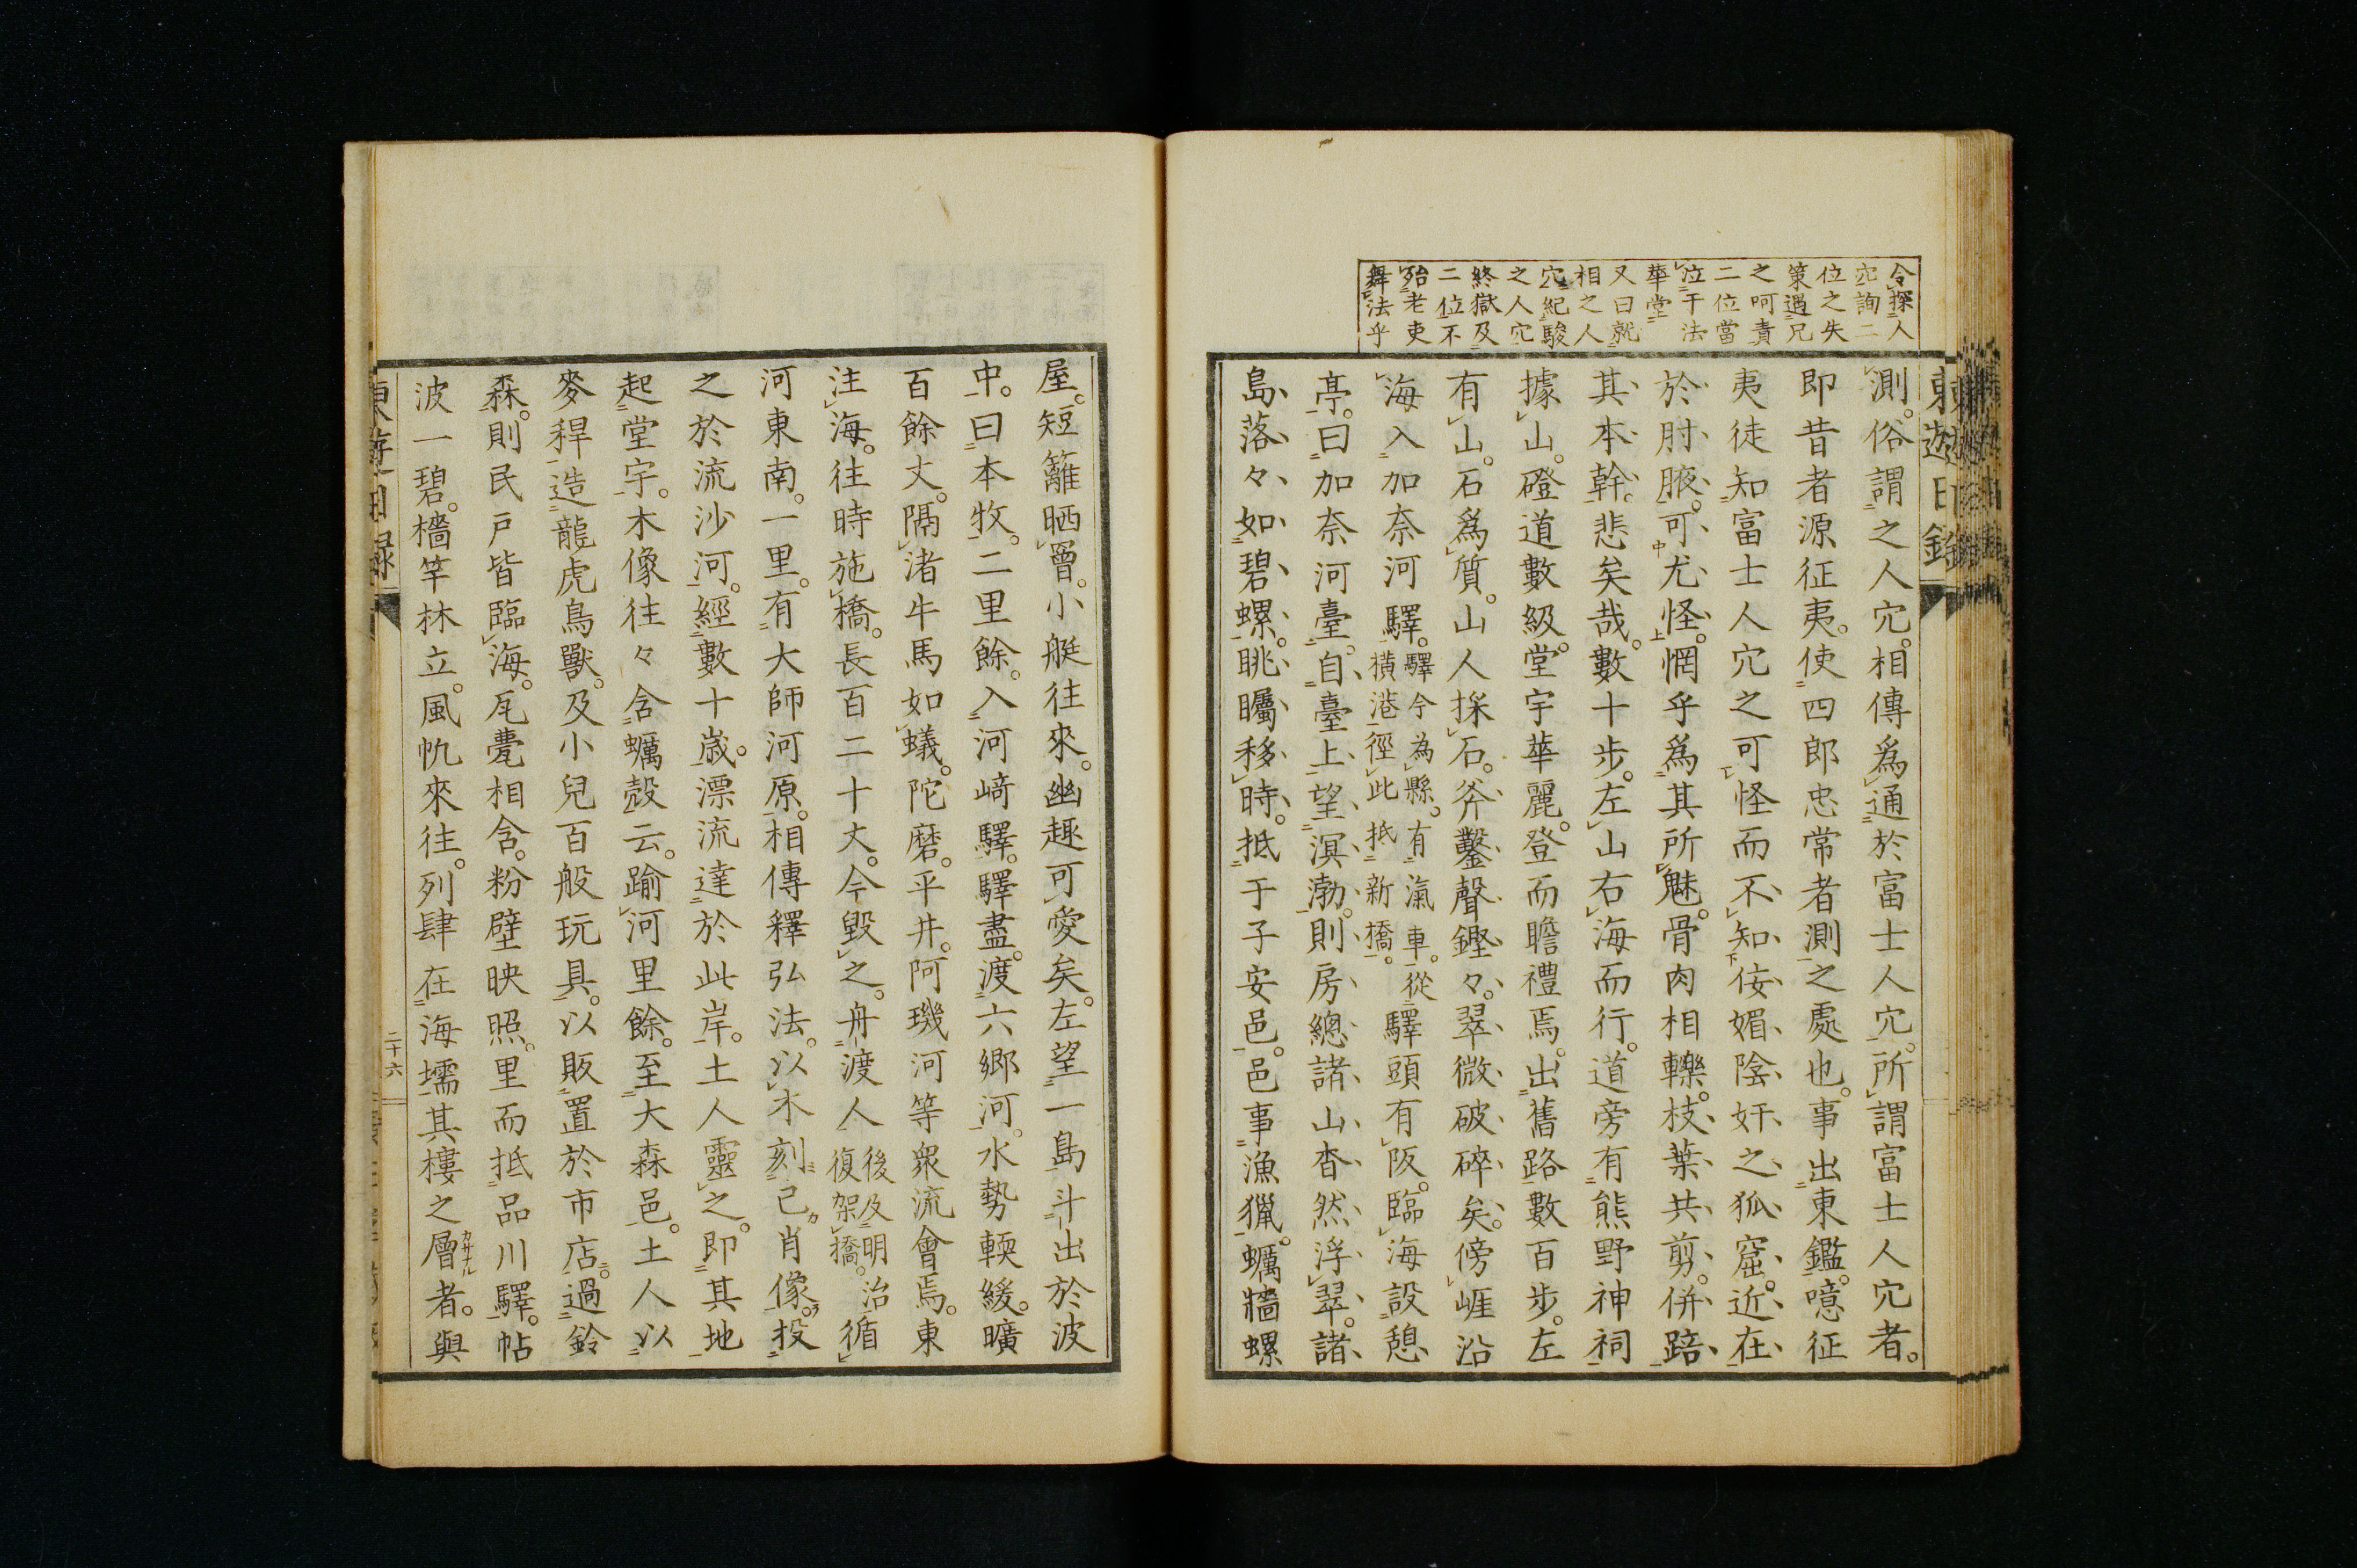 令探人
穴詢二
位之失
策遇兄
之呵責
二位當
泣干法
華堂
又曰就
相之人
穴紀駿
之人穴
終獄及
二位不
殆老吏
舞法乎
東遊日錄
測。俗謂之人穴。相傳爲通於富士人穴。所謂富士人穴者。
即昔者源征夷。使四郎忠常者測之處也。事出東鑑。噫征
夷徒知富士人穴之可怪而不知侫媚陰奸之狐窟。近在
於肘腋。可尤怪。惘乎爲其所魅。骨肉相轢。枝葉共剪。併踣
其本幹。悲矣哉。數十步。左山右海而行。道旁有熊野神祠
據山。磴道數級。堂宇華麗。登而瞻禮焉。出舊路數百步。左
有山。石爲質。山人採石。斧鑿聲鏗々。翠微破碎矣。傍崕沿
海入加奈河驛。驛今為縣。有滊車。從橫港徑此抵新橋。驛頭有阪。臨海設憩
亭。曰加奈河臺。自臺上望溟渤。則房總諸山杳然浮翠。諸
島落々如碧螺。眺矚移時。抵于子安邑。邑事漁獵。蠣牆螺
屋。短籬晒罾。小艇往來。幽趣可愛矣。左望一島斗出於波
中。曰本牧。二里餘。入河崎驛。驛盡。渡六鄉河。水勢輭緩。曠
百餘丈。隔渚牛馬如蟻。陀磨。平井。阿璣河等衆流會焉。東
注海。往時施橋。長百二十丈。今毀之。舟渡人後及明治復架橋。循
河東南。一里。有大師河原。相傳釋弘法。以木刻ミ己カ肖像ヲ。投
之於流沙河。經數十歳。漂流達於此岸。土人靈之。即其地
起堂宇。木像往々含蠣殼云。踰河里餘。至大森邑。土人以
麥稈造龍虎鳥獸。及小兒百般玩具。以販置於市店。過鈴
森。則民戶皆臨海。瓦甍相含。粉壁映照。里而抵品川驛。帖
波一碧。檣竿林立。風帆來往。列肆在海壖其樓之層カサナル者。與
東遊日録
二十六